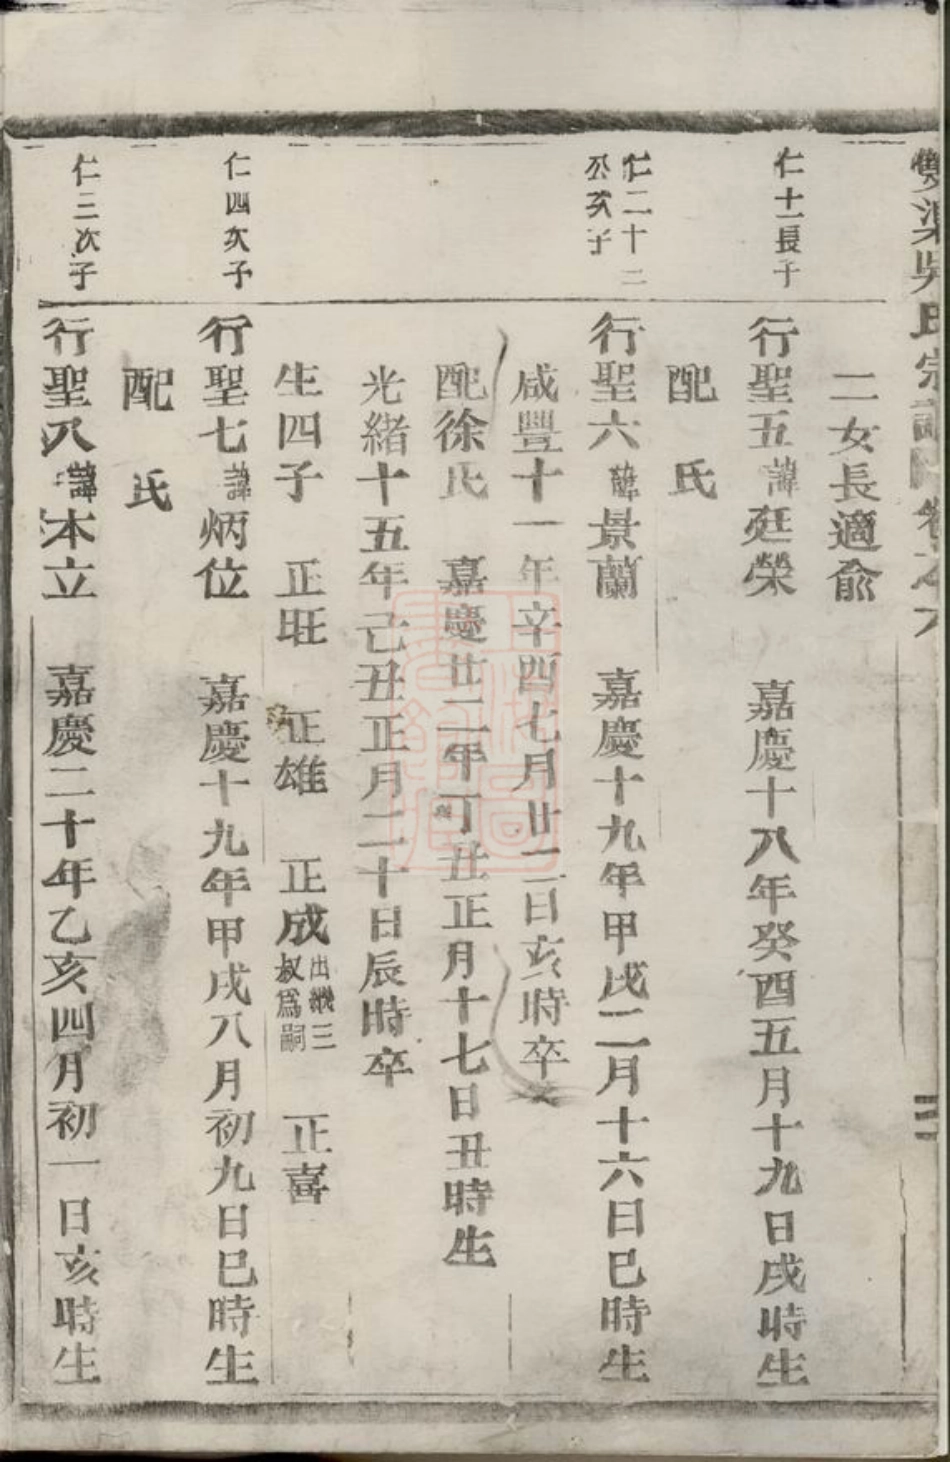 雙渠吳氏宗譜 卷之六
二女長適俞
仁十一長子
行聖五諱廷榮 嘉慶十八年癸酉五月十九日戌時生
配 氏
仁二十二
公次子
行聖六諱景蘭 嘉慶十九年甲戌二月十六日巳時生
咸豐十一年辛酉七月廿二日亥時卒
配徐氏 嘉慶廿二年丁丑正月十七日丑時生
光緒十五年己丑正月二十日辰時卒
生四子 正旺 正雄 正成出繼三叔爲嗣 正喜
仁四次子
行聖七諱炳位 嘉慶十九年甲戌八月初九日巳時生
配 氏
仁三次子
行聖八諱本立 嘉慶二十年乙亥四月初一日亥時生